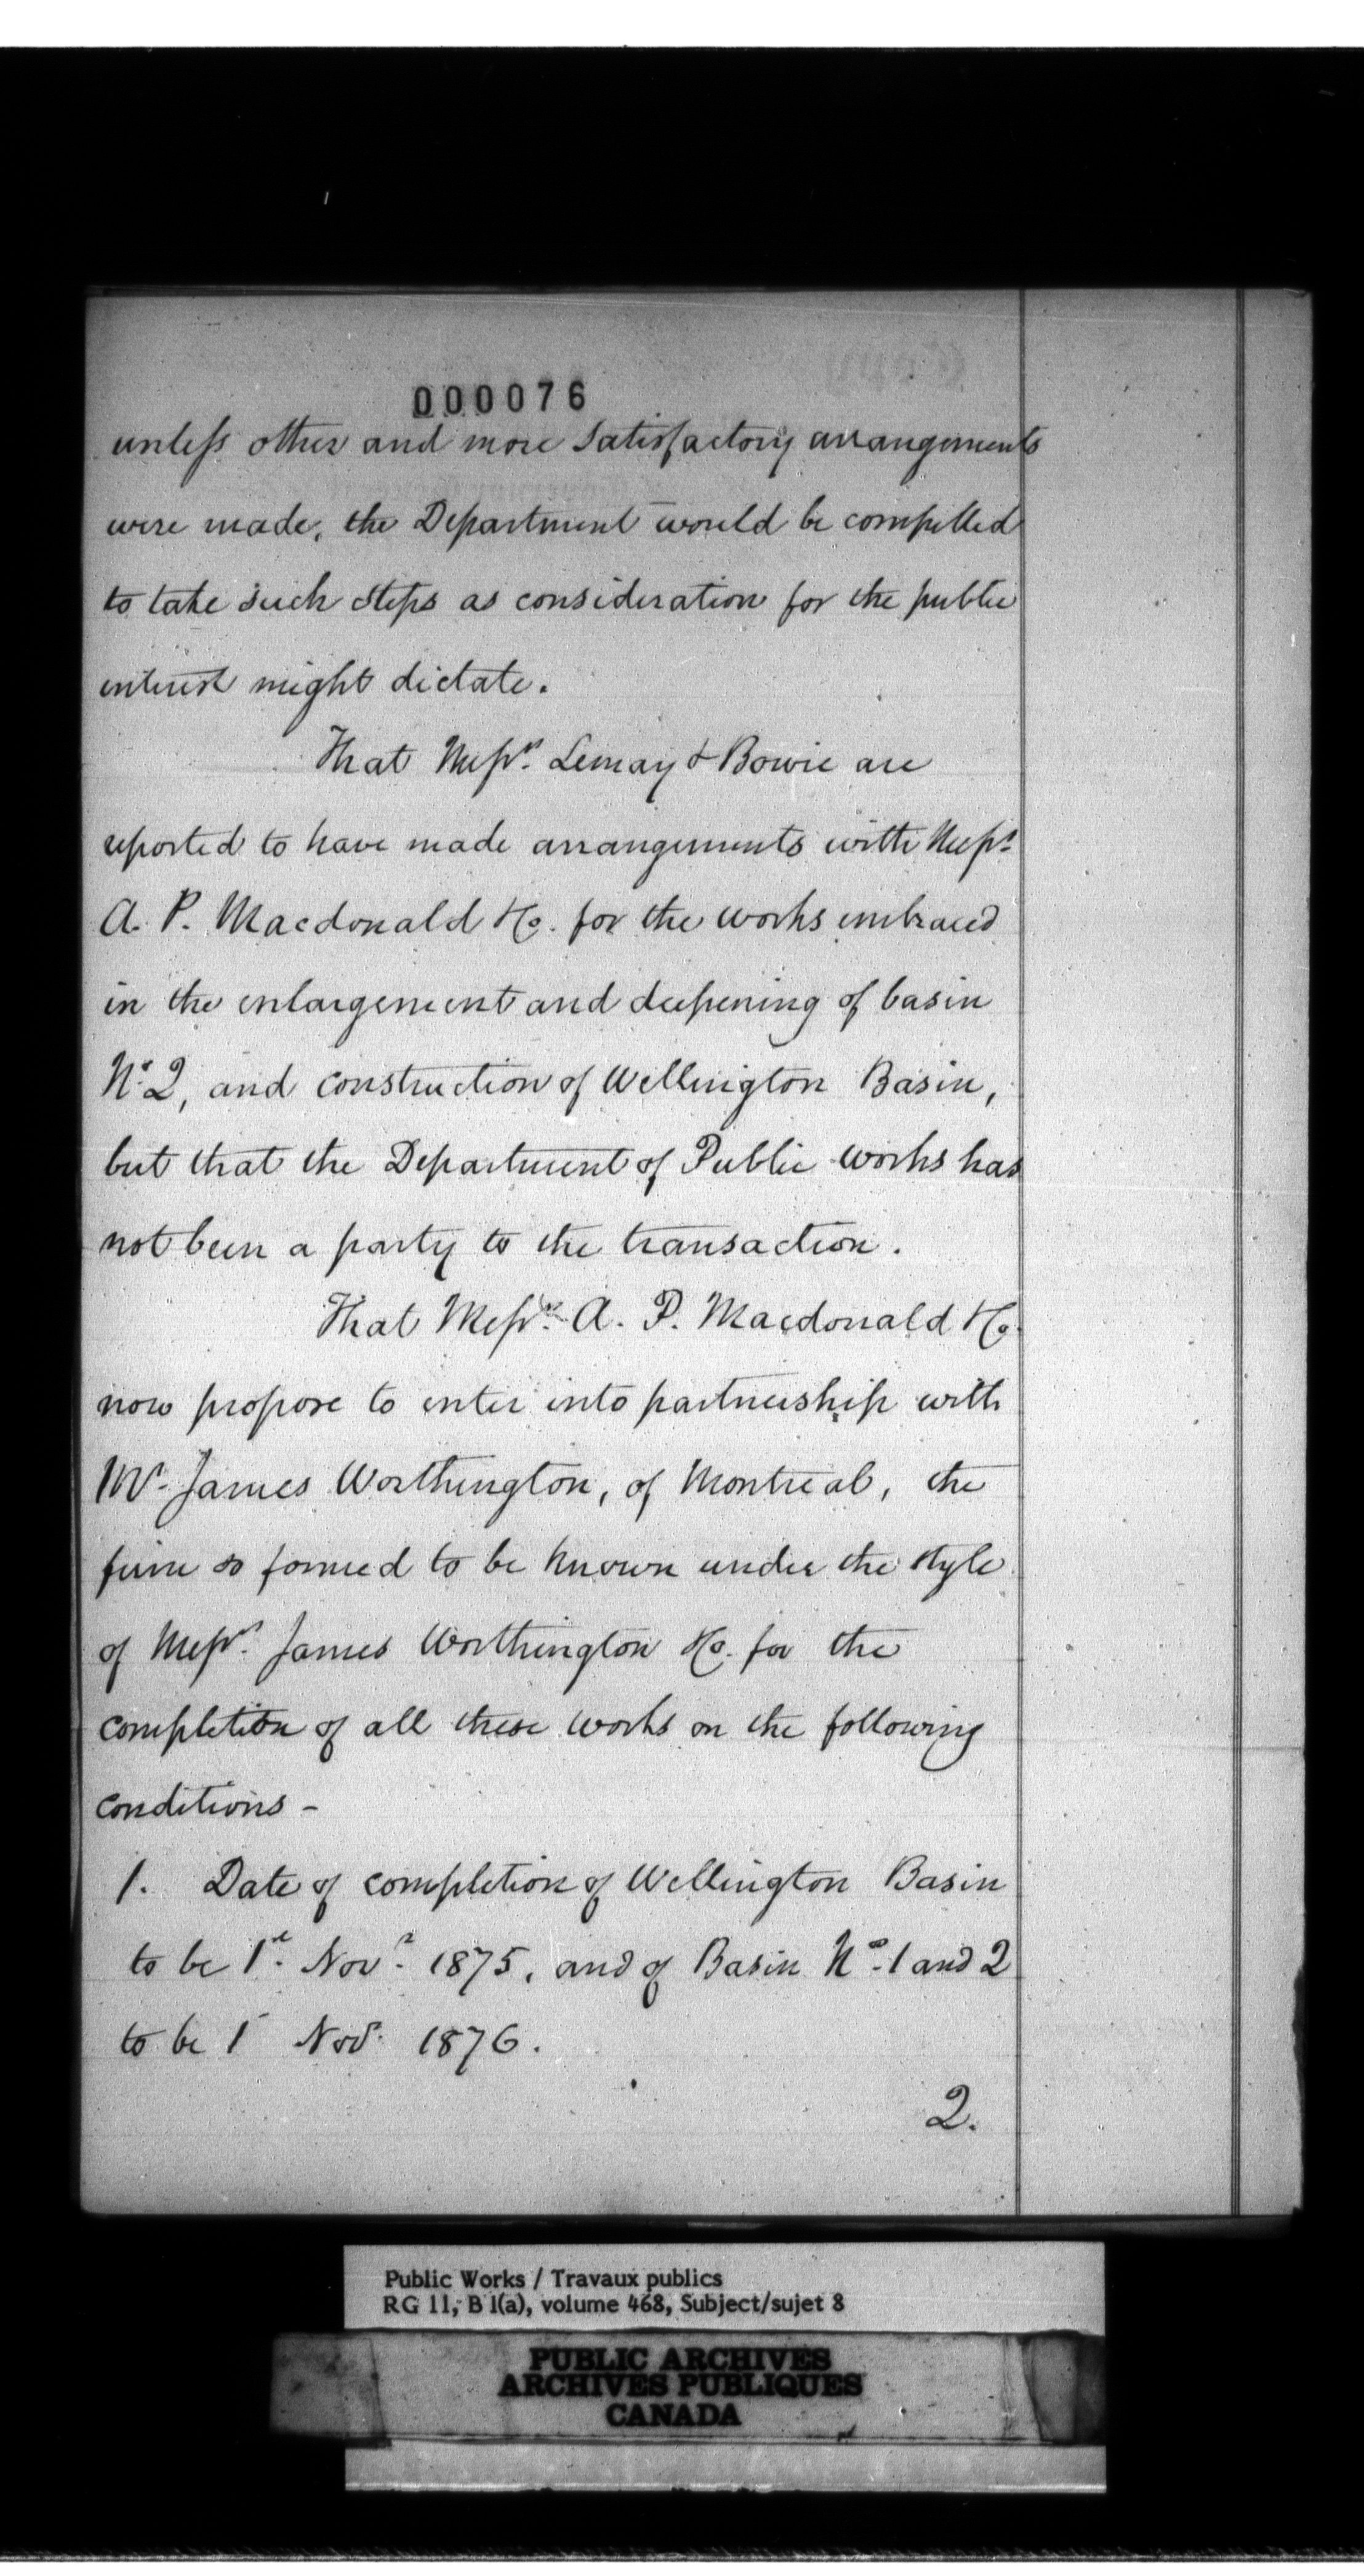 000076
unless other and more satisfactory arrangements
were made, the Department would be compelled
to take such steps as consideration for the public
interest might dictate.
That Messrs. Lemay & Bowie are
reported to have made arrangements with Messrs.
A. P. Macdonald & Co. for the works embraced
in the enlargement and deepening of basin
No. 2, and construction of Wellington Basin,
but that the Department of Public Works has
not been a party to the transaction.
That Messrs. A. P. Macdonald & Co.
now propose to enter into partnership with
Mr. James Worthington, of Montreal, the
firm so formed to be known under the style
of Messrs. James Worthington & Co. for the
completion of all these works on the following
conditions -
1. Date of completion of Wellington Basin
to be 1st. Novr. 1875, and of Basin Nos. 1 and 2
to be 1st Nov. 1876.
2.
Public Works / Travaux publics
RG 11, B 1(a), volume 468, Subject/sujet 8
PUBLIC ARCHIVES
ARCHIVES PUBLIQUES
CANADA